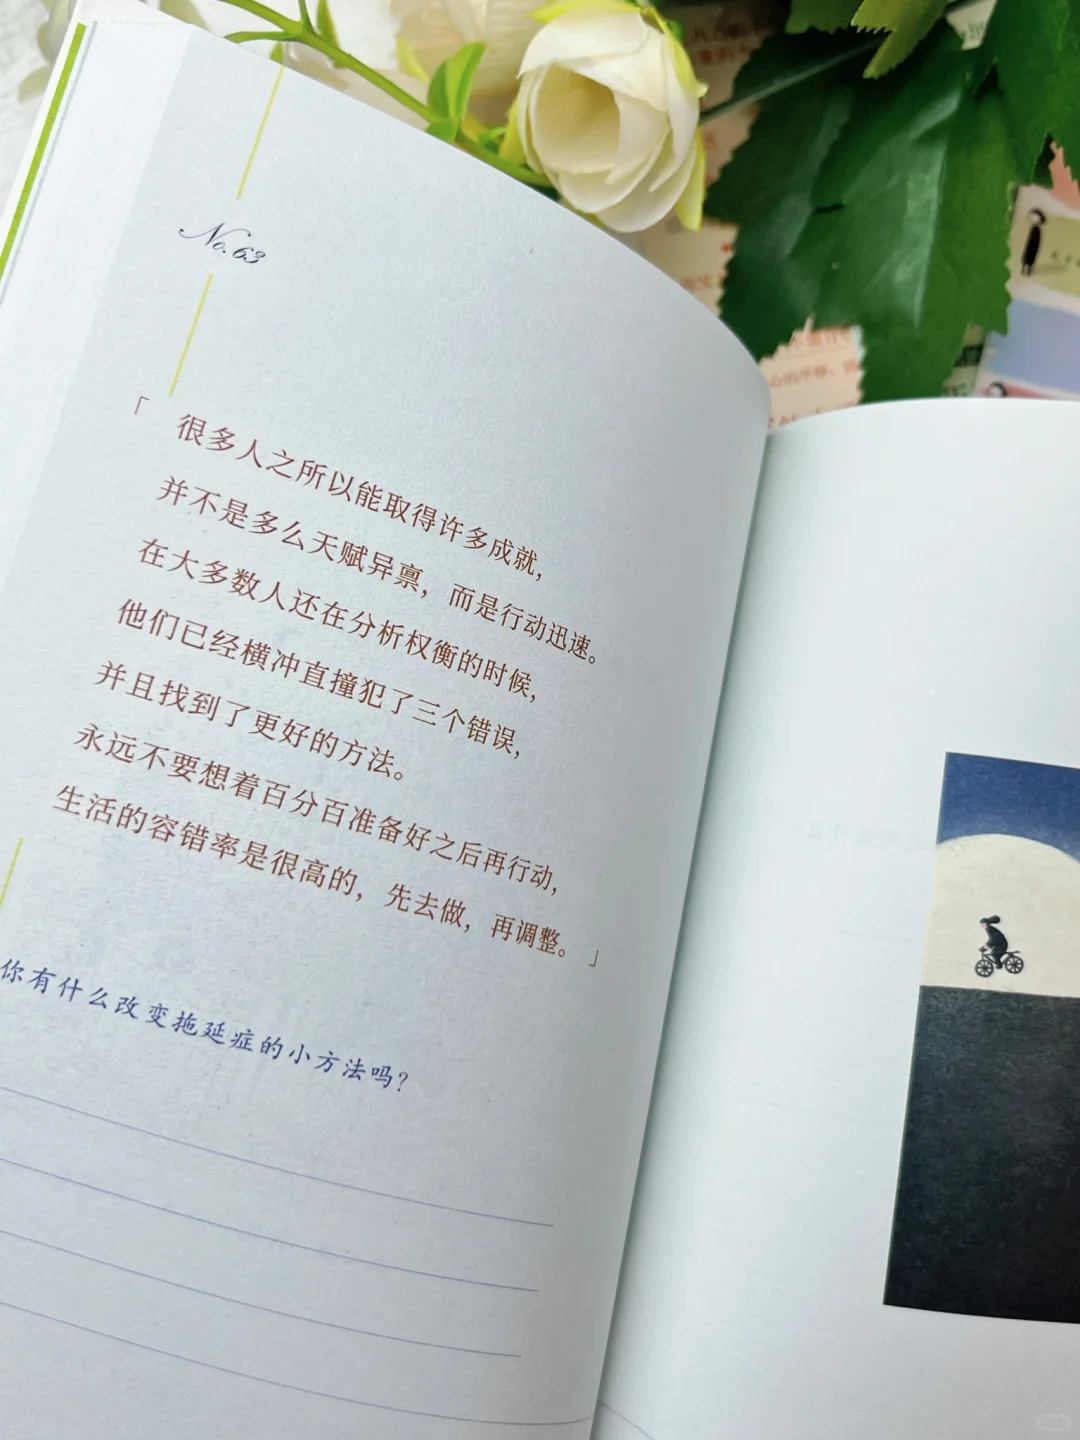 No. 63
「 很多人之所以能取得许多成就,
并不是多么天赋异禀, 而是行动迅速。
在大多数人还在分析权衡的时候,
他们已经横冲直撞犯了三个错误,
并且找到了更好的方法。
永远不要想着百分百准备好之后再行动,
生活的容错率是很高的, 先去做, 再调整。 」
你有什么改变拖延症的小方法吗?
心的平静